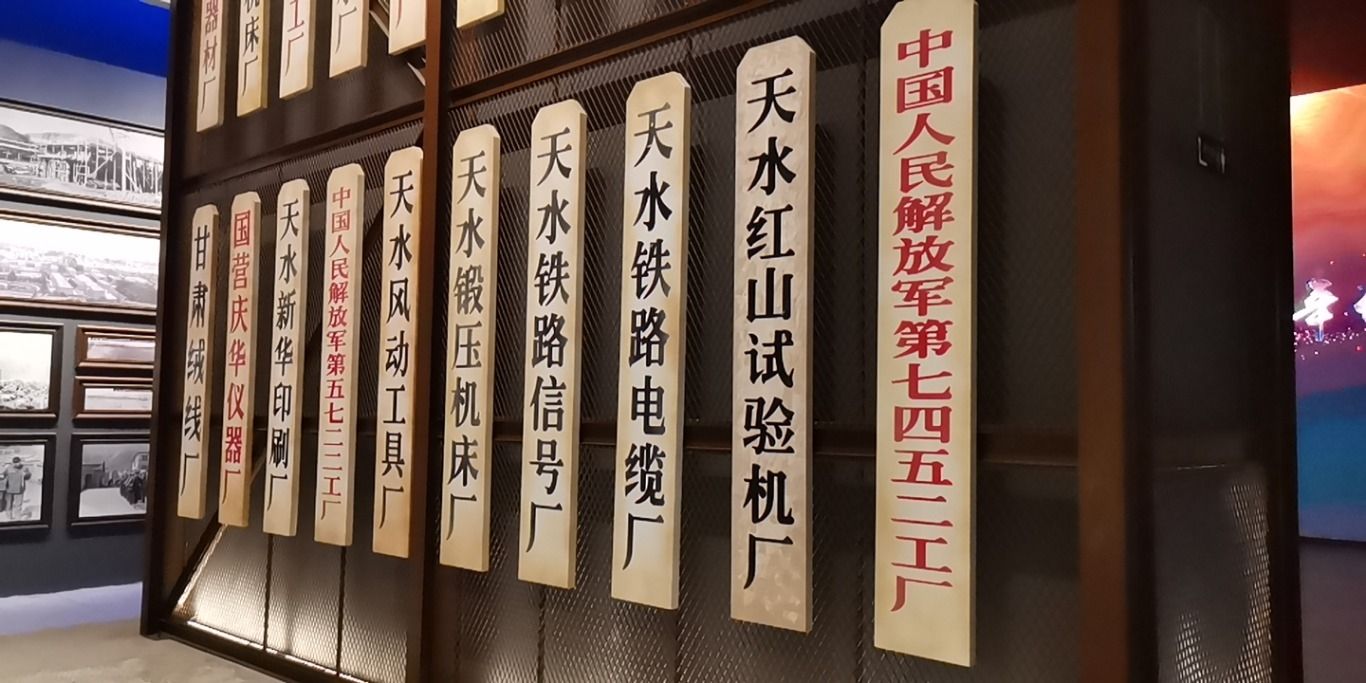 器材厂
机床厂
工厂
厂
厂
甘肃绒线厂
国营庆华仪器厂
天水新华印刷厂
中国人民解放军第五七二二工厂
天水风动工具厂
天水锻压机床厂
天水铁路信号厂
天水铁路电缆厂
天水红山试验机厂
中国人民解放军第七四五二工厂